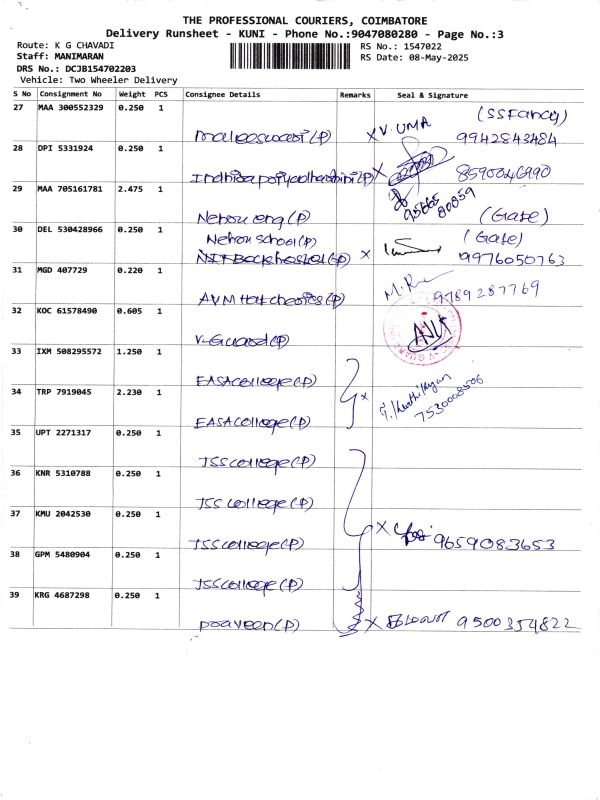 THE PROFESSIONAL COURIERS, COIMBATORE
Delivery Runsheet - KUNI - Phone No.:9047080280 - Page No.:3
Route: K G CHAVADI RS No.: 1547022
Staff: MANIMARAN RS Date: 08-May-2025
DRS No.: DCJB154702203
Vehicle: Two Wheeler Delivery
S No Consignment No Weight PCS Consignee Details Remarks Seal & Signature
27 MAA 300552329 0.250 1 (SSFancy)
Maleeswari(P) x V. UMA 9942843484
28 DPI 5331924 0.250 1
x 8590046990
29 MAA 705161781 2.475 1 95665 80859
Nehru eng(P) (Gate)
30 DEL 530428966 0.250 1
Nehru school(P) (Gate)
x 9976050763
31 MGD 407729 0.220 1
AVM Hatcheries(P) 9789287769
32 KOC 61578490 0.605 1
V-Guard(P)
33 IXM 508295572 1.250 1
EASA college(P)
34 TRP 7919045 2.230 1 x
EASA college(P) 7530008506
35 UPT 2271317 0.250 1
JSS college(P)
36 KNR 5310788 0.250 1
JSS college(P)
37 KMU 2042530 0.250 1
JSS college(P) x 9659083653
38 GPM 5480904 0.250 1
JSS college(P)
39 KRG 4687298 0.250 1
Praveen(P) x 9500354822